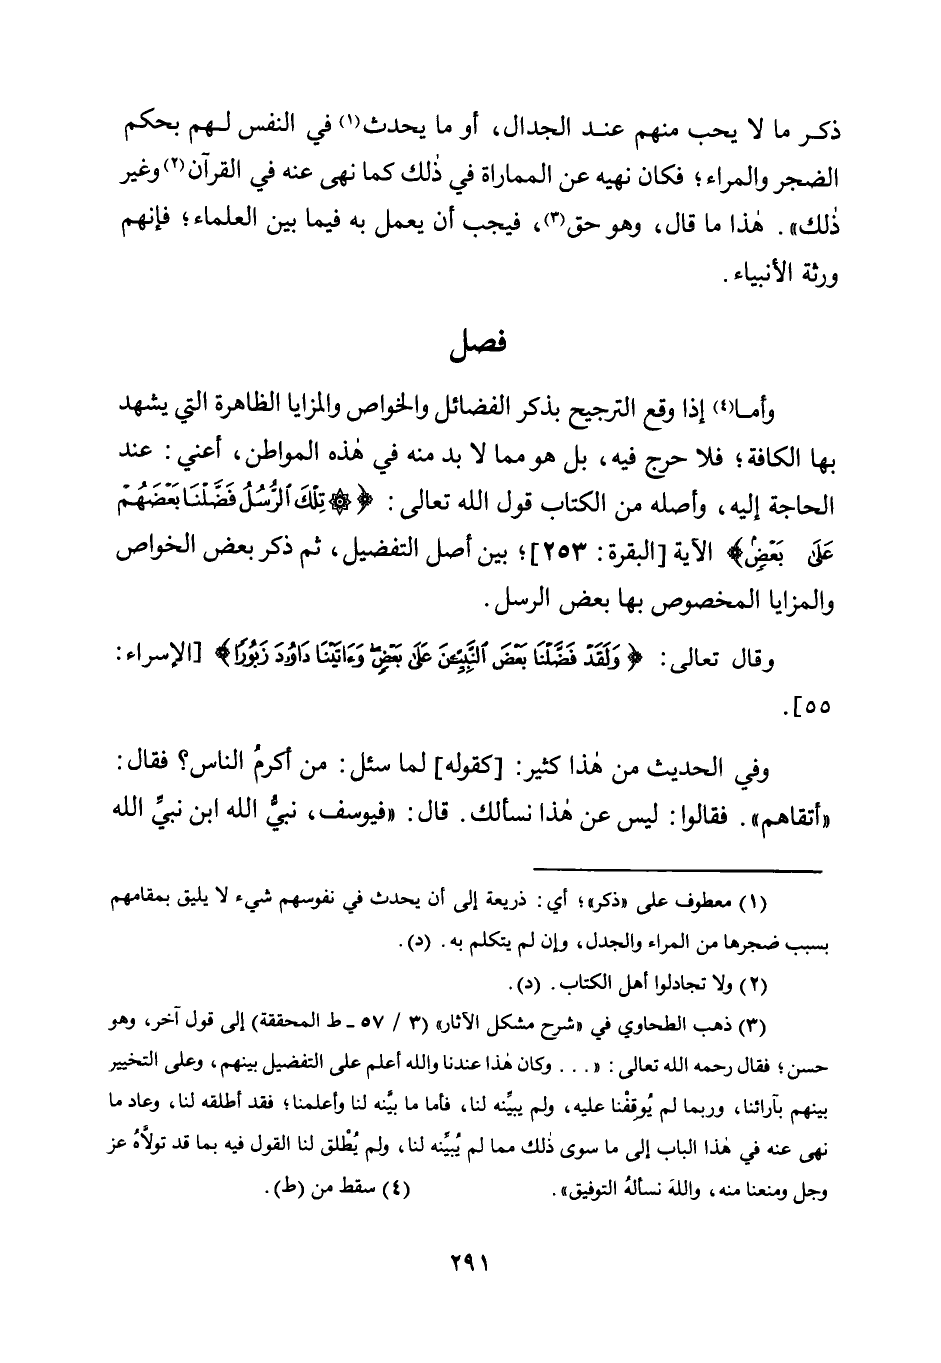 ذكر ما لا يحب منهم عند الجدال، أو ما يحدث(١) في النفس لهم بحكم
الضجر والمراء؛ فكان نهيه عن المماراة في ذٰلك كما نهى عنه في القرآن(٢) وغير
ذٰلك». هٰذا ما قال، وهو حق(٣)، فيجب أن يعمل به فيما بين العلماء؛ فإنهم
ورثة الأنبياء.
فصل
وأما(٤) إذا وقع الترجيح بذكر الفضائل والخواص والمزايا الظاهرة التي يشهد
بها الكافة؛ فلا حرج فيه، بل هو مما لا بد منه في هٰذه المواطن، أعني: عند
الحاجة إليه، وأصله من الكتاب قول الله تعالى: ﴿۞ تِلْكَ ٱلرُّسُلُ فَضَّلْنَا بَعْضَهُمْ
عَلَىٰ بَعْضٍ﴾ الآية [البقرة: ٢٥٣]؛ بين أصل التفضيل، ثم ذكر بعض الخواص
والمزايا المخصوص بها بعض الرسل.
وقال تعالى: ﴿وَلَقَدْ فَضَّلْنَا بَعْضَ ٱلنَّبِيِّـۧنَ عَلَىٰ بَعْضٍ وَءَاتَيْنَا دَاوُۥدَ زَبُورًا﴾ [الإسراء:
٥٥].
وفي الحديث من هٰذا كثير: [كقوله] لما سئل: من أكرمُ الناس؟ فقال:
«أتقاهم». فقالوا: ليس عن هٰذا نسألك. قال: «فيوسف، نبيُّ الله ابن نبيِّ الله
(١) معطوف على «ذكر»؛ أي: ذريعة إلى أن يحدث في نفوسهم شيء لا يليق بمقامهم
بسبب ضجرها من المراء والجدل، وإن لم يتكلم به. (د).
(٢) ولا تجادلوا أهل الكتاب. (د).
(٣) ذهب الطحاوي في «شرح مشكل الآثار» (٣ / ٥٧ ـ ط المحققة) إلى قول آخر، وهو
حسن؛ فقال رحمه الله تعالى: «... وكان هٰذا عندنا والله أعلم على التفضيل بينهم، وعلى التخيير
بينهم بآرائنا، وربما لم يُوقِفْنا عليه، ولم يبيِّنه لنا، فأما ما بيَّنه لنا وأعلمنا؛ فقد أطلقه لنا، وعاد ما
نهى عنه في هٰذا الباب إلى ما سوى ذٰلك مما لم يُبيِّنه لنا، ولم يُطْلق لنا القول فيه بما قد تولاَّهُ عز
وجل ومنعنا منه، واللهَ نسألهُ التوفيق». (٤) سقط من (ط).
٢٩١